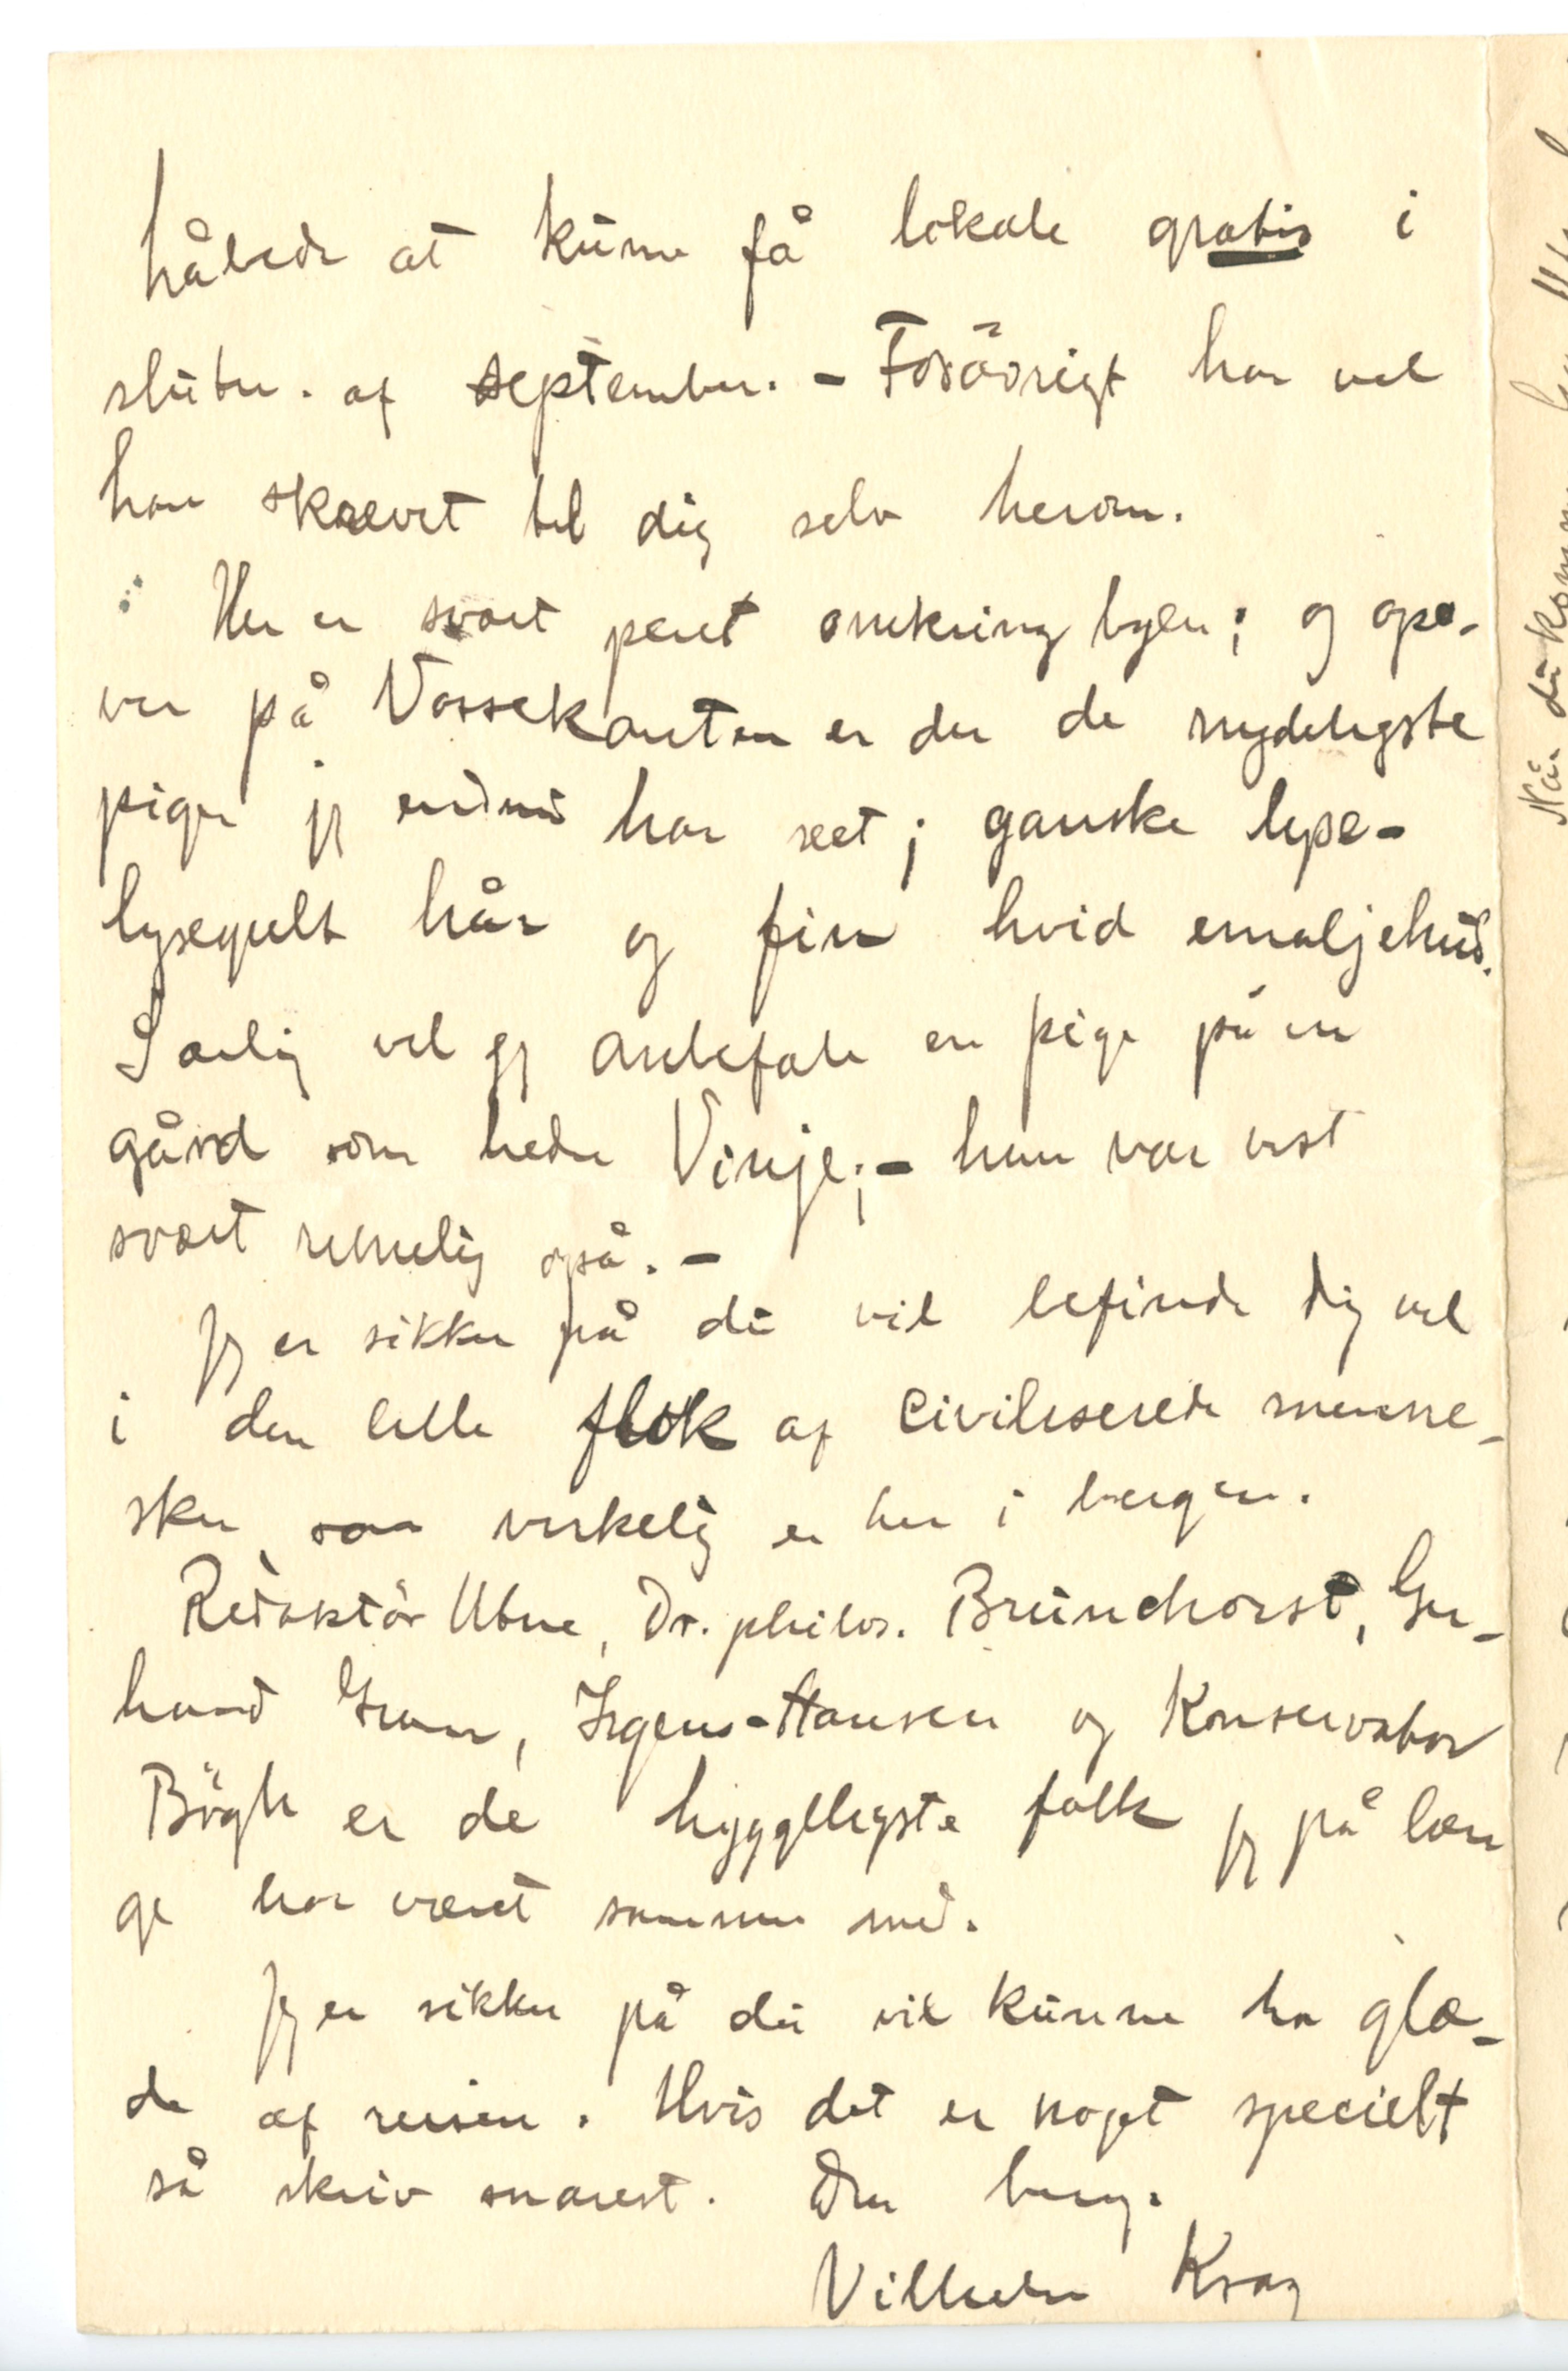 håbede at kunne få lokale gratis i
slutn. af september. - Forövrigt har vel
han skrevet til dig selv herom.
Her er svært pent omkring byen; og opo-
ver på Vossekanten er der de nydeligste
piger jeg endnu har seet; ganske lyse-
lysegult hår og fin hvid emaljehud.
Særlig vil jeg anbefale en pige på en
gård som heder Vinje; - hun var vist
svært rimelig også. -
Jeg er sikker på du vil befinde dig vel
i den lille flok af civiliserede menne-
sker, som virkelig er her i bergen.
Redaktör Utne, Dr. philos. Brunchorst, Ger-
hard Gran, Irgens-Hansen og Konservator
Bögh er de hyggeligste folk jeg på læn
ge har været sammen med.
Jeg er sikker på du vil kunne ha glæ-
de af reisen. Hvis det er noget specielt
så skriv snarest. Din heng.
Vilhelm Krag
Når du kommer